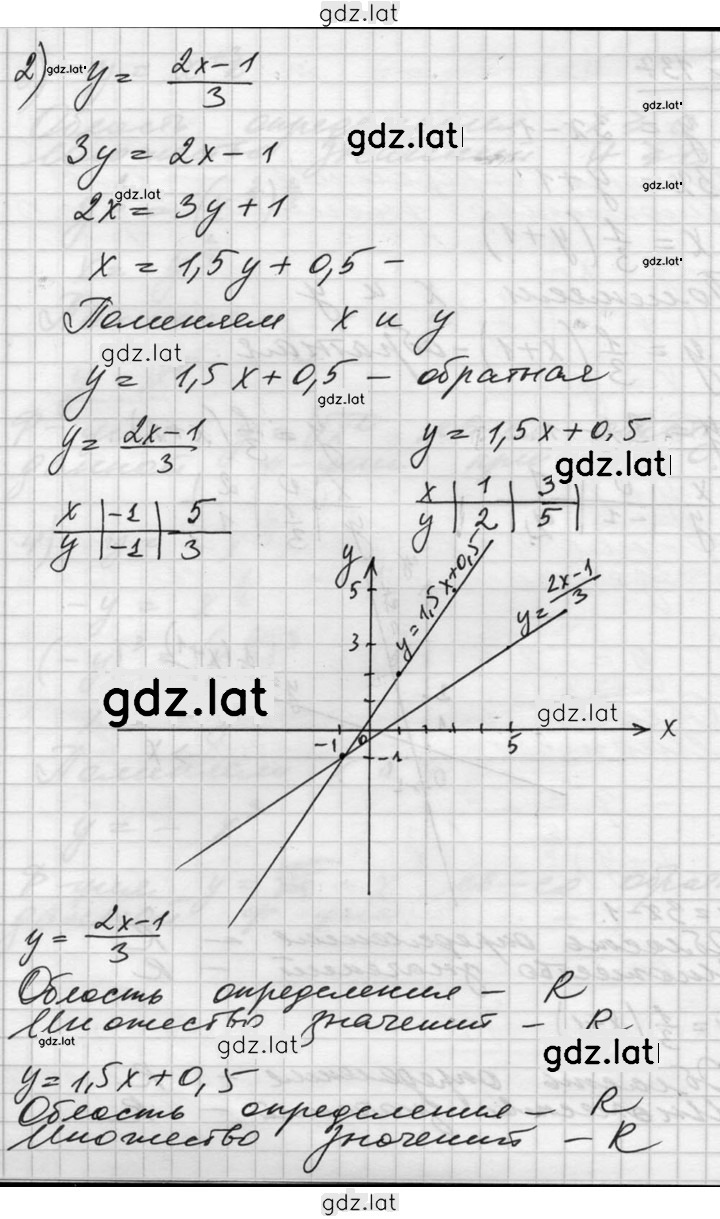 gdz.lat
2) gdz.lat y = 2x-1/3
gdz.lat
3y = 2x - 1 gdz.lat
gdz.lat gdz.lat
2x = 3y + 1
x = 1,5y + 0,5 - gdz.lat
Поменяем x и y
gdz.lat
y = 1,5x + 0,5 - обратная
gdz.lat
y = 2x-1/3 y = 1,5x + 0,5
gdz.lat
x | -1 | 5 x | 1 | 3 |
y | -1 | 3 y | 2 | 5 |
y
5 y = 1,5x+0,5 y = 2x-1/3
3
gdz.lat gdz.lat
-1 0 5 x
-1
y = 2x-1/3
Область определения - R
Множество значений - R
gdz.lat gdz.lat gdz.lat
y = 1,5x + 0,5
Область определения - R
Множество значений - R
gdz.lat